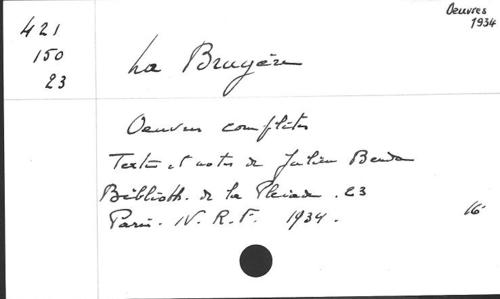 Oeuvres
1934
421
150
23
La Bruyère
Oeuvres complètes
Texte et notes de Julien Benda
Biblioth. de la Pleiade. 23
Paris. N. R. F. 1934.
16